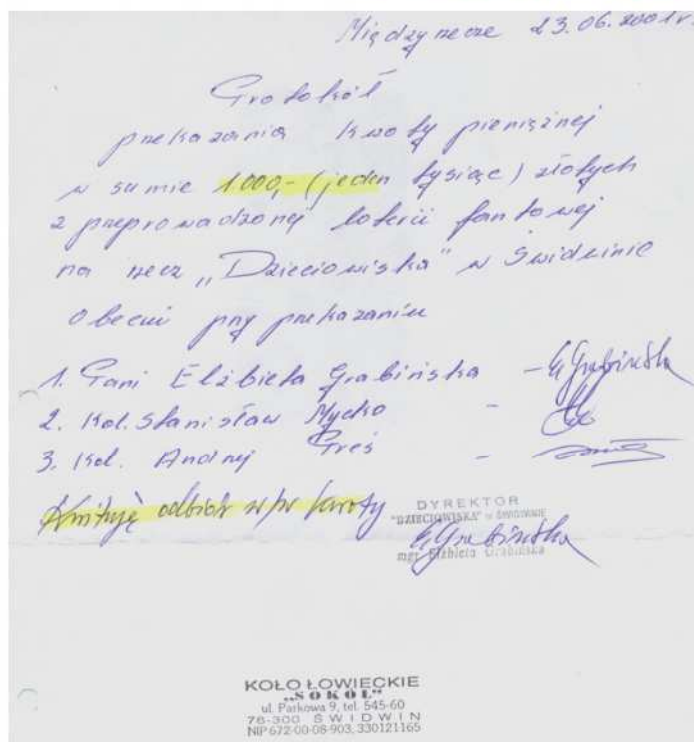 Międzyrzecze 23.06.2001r.
Protokół
przekazania kwoty pieniężnej
w sumie 1.000,- (jeden tysiąc) złotych
z przeprowadzonej loterii fantowej
na rzecz „Dzieciowiska" w Świdwinie
Obecni przy przekazaniu
1. Pani Elżbieta Grabińska - EGrabińska
2. Kol. Stanisław Mycko -
3. Kol. Andrzej Greś -
Kwituję odbiór w/w kwoty
DYREKTOR
"DZIECIOWISKA" w ŚWIDWINIE
EGrabińska
mgr Elżbieta Grabińska
KOŁO ŁOWIECKIE
„SOKÓŁ"
ul. Parkowa 9, tel. 545-60
78-300 ŚWIDWIN
NIP 672-00-08-903, 330121165